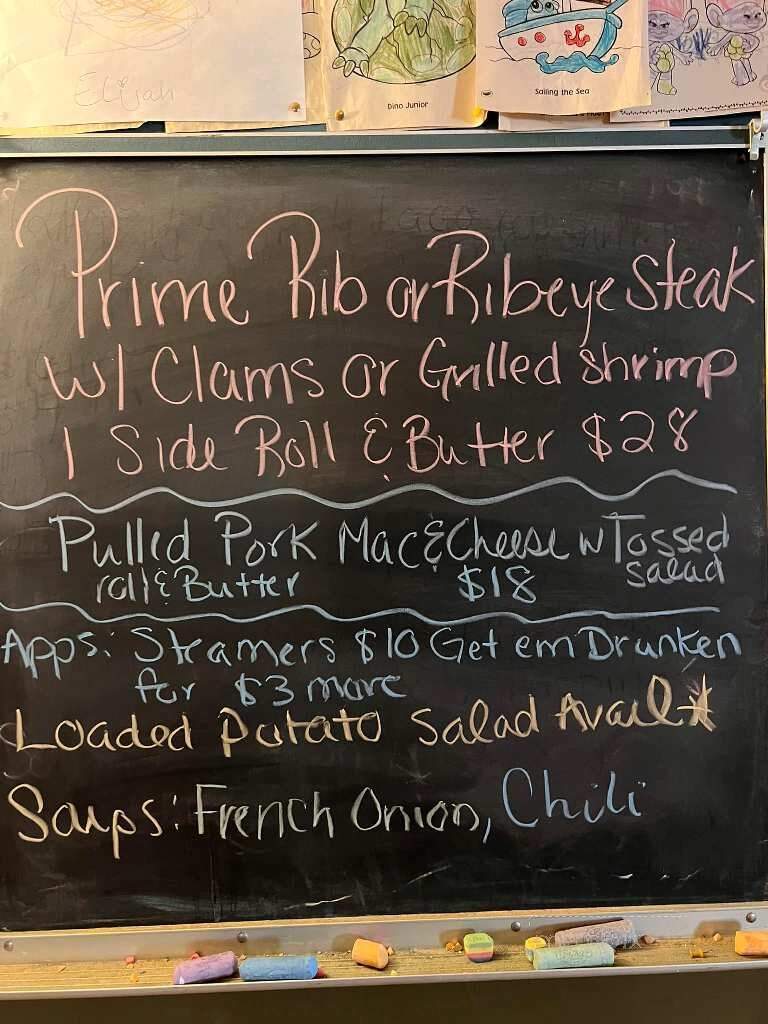 Elijah
Dino Junior
Sailing the Sea
Prime Rib or Ribeye Steak
w/ Clams or Grilled Shrimp
1 Side Roll & Butter $28
Pulled Pork Mac & Cheese w Tossed
roll & Butter $18 salad
Apps: Steamers $10 Get em Drunken
for $3 more
Loaded Potato Salad Avail*
Soups: French Onion, Chili